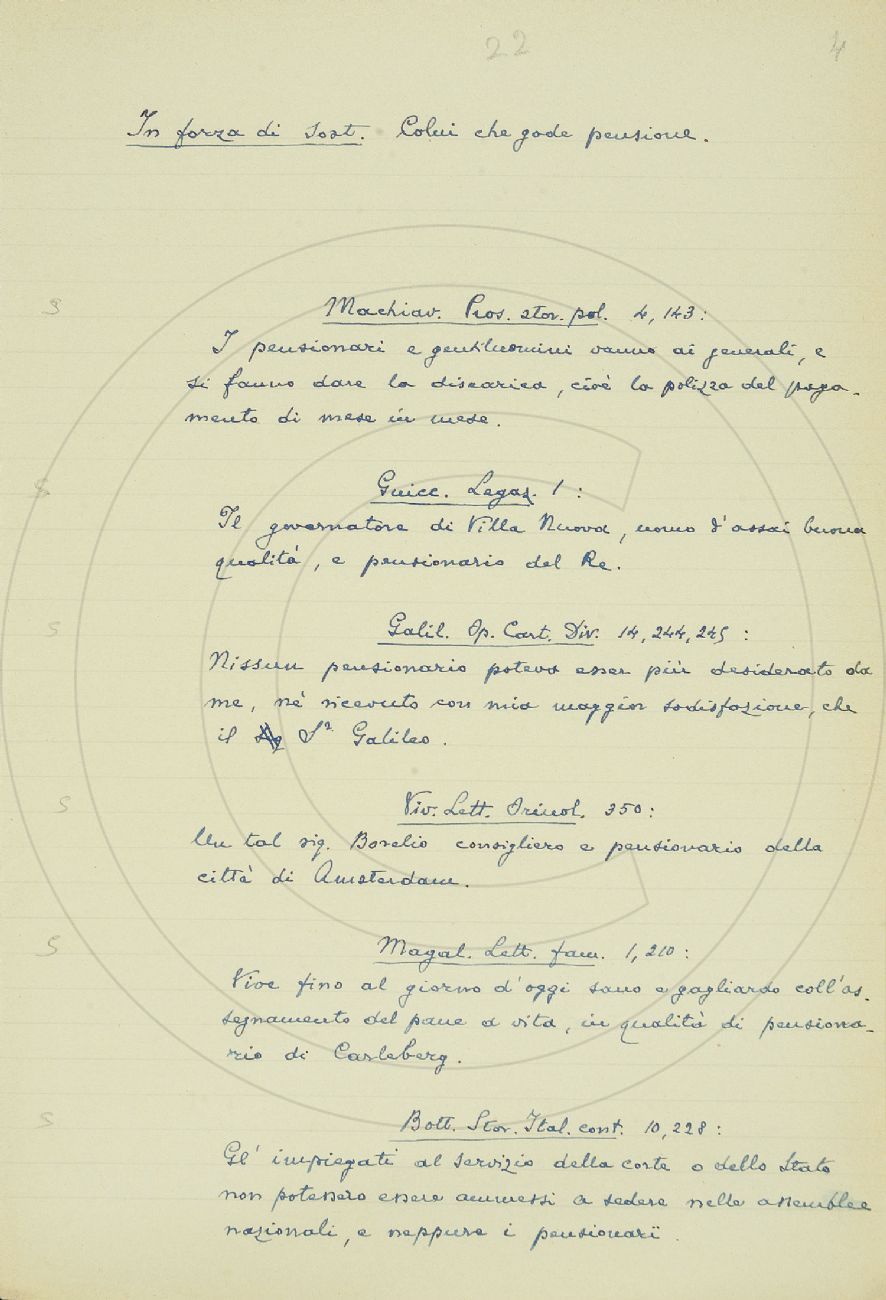 22 4
In forza di Sost. Colui che gode pensione.
S
Machiav. Pros. stor. pol. 4, 143:
I pensionari e gentiluomini vanno ai generali, e
si fanno dare la discarica, cioè la polizza del paga-
mento di mese in mese.
S
Guicc. Legaz. 1:
Il governatore di Villa Nuova, uomo d'assai buona
qualità, e pensionario del Re.
S
Galil. Op. Cart. Div. 14, 244, 245:
Nissun pensionario poteva esser più desiderato da
me, nè ricevuto con mia maggior sodisfazione, che
il Sr Galileo.
S
Viv. Lett. Oriuol. 350:
Un tal sig. Borelio consigliero e pensionario della
città di Amsterdam.
S
Magal. Lett. fam. 1, 210:
Vive fino al giorno d'oggi sano e gagliardo coll'as-
segnamento del pane a vita, in qualità di pensiona-
rio di Carleberg.
S
Bott. Stor. Ital. cont. 10, 228:
Gl'impiegati al servizio della corte o dello Stato
non potessero essere ammessi a sedere nelle assemblee
nazionali, e neppure i pensionarï.